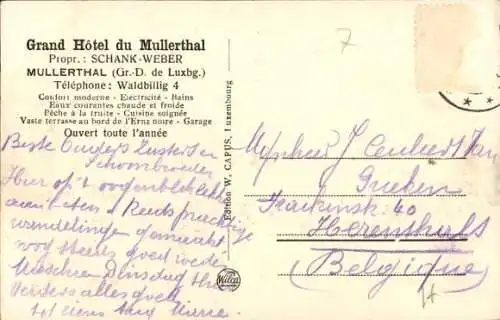 Grand Hôtel du Mullerthal
Propr.: SCHANK-WEBER
MULLERTHAL (Gr.-D. de Luxbg.)
Téléphone: Waldbillig 4
Confort moderne - Electricité - Bains
Eaux courantes chaude et froide
Pêche à la truite - Cuisine soignée
Vaste terrasse au bord de l'Ernz noire - Garage
Ouvert toute l'année
Beste Ouders Zusters en
Schoonbroeder
Hier op 't oogenblik
Reeds prachtige
wandelingen gemaakt
nog steeds goed weder
Misschien Dinsdag thuis
Verders alles goed
tot ziens
Edition W. CAPUS, Luxembourg
7
Mijnheer J
40
Herenthals
Belgique
Wilco